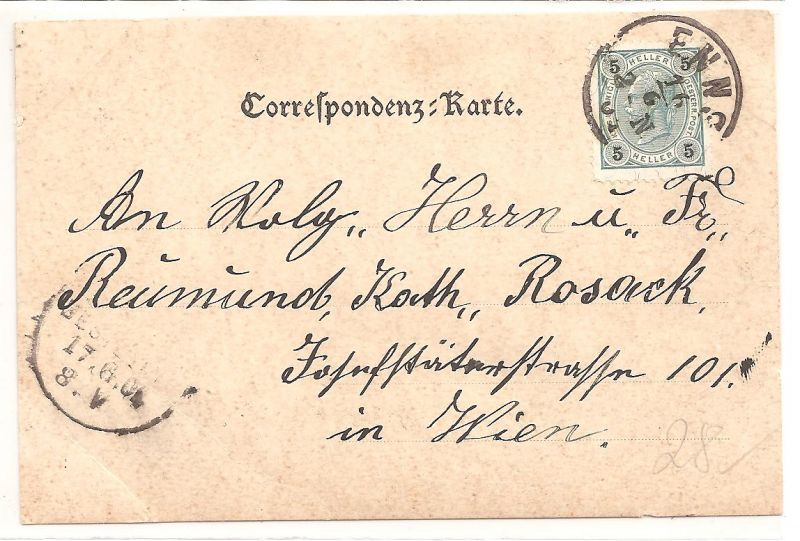 Correspondenz-Karte.
ENNS
16
6
5 HELLER 5
5 HELLER 5
An Wolg,, Herrn u,, Fr,,
Reumund, Kath,, Rosack,
Josefstäterstrasse 101.
in Wien.
BEST
17.6.01
8
28